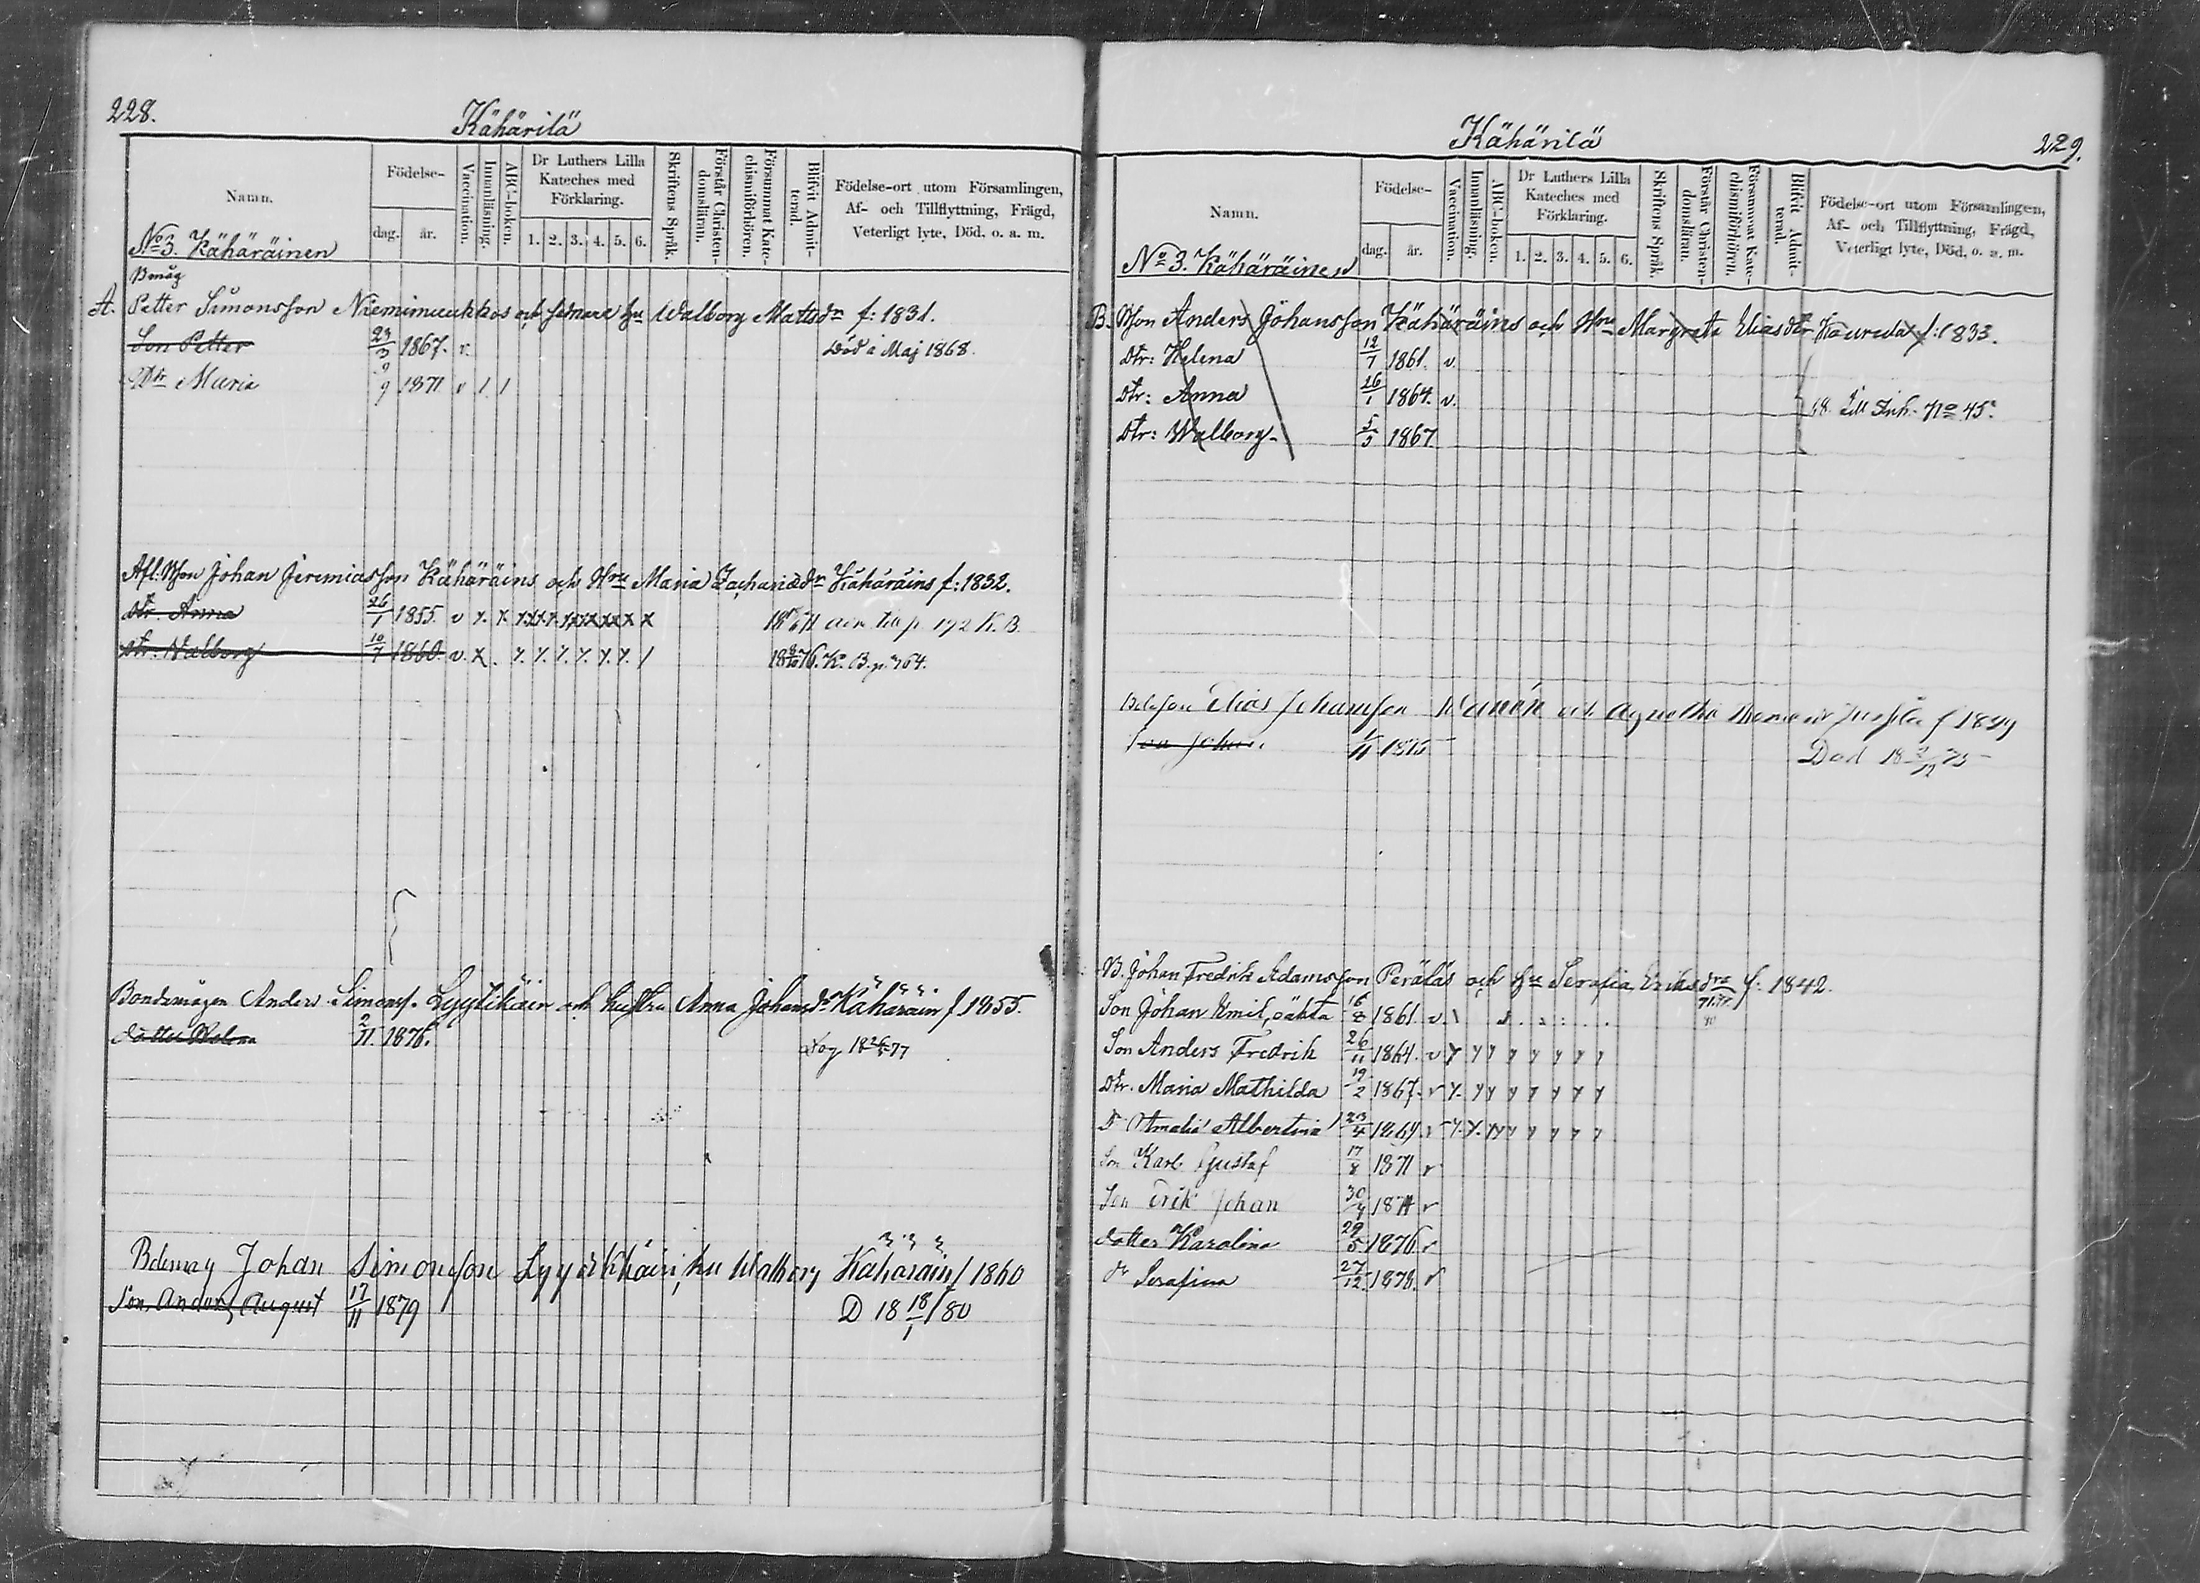 228.
Kähärilä
Namn.
Födelse-
dag.
år.
Vaccination.
Innanläsning.
ABC-boken.
Dr Luthers Lilla Kateches med Förklaring.
1. 2. 3. 4. 5. 6.
Skriftens Språk.
Förstår Christendomsläran.
Försummat Katechismiförhören.
Blifvit Admitterad.
Födelse-ort utom Församlingen, Af- och Tillflyttning, Frägd, Veterligt lyte, Död, o. a. m.
No 3. Kähäräinen
Bmåg
A. Petter Simonsson Niemimuukkos och senare hu Walborg Mattsdr f: 1831.
Son Petter 23/3 1867. v. Död i Maj 1868.
Dtr Maria 9/9 1871 v / /
Afl. Bson Johan Jeremiasson Kähäräins och Hru Maria Zachariædr Kähäräins f: 1832.
Dtr. Anna 26/1 1855. v x. x. 192 K. B
Dtr: Walborg 10/7 1860. v. x. 76. K. B. p. 364.
Bondemågen Anders Simonss. Lyytikäin och hustru Anna Johansdr Kähäräin f 1855.
dotter Helena 2/11 1876. Dog 18 26/5 77
Bdemåg Johan Simonsson Lyytikäin, hu Walborg Kähäräin f 1860
Son, Anders August 17/11 1879 D 18 18/1 80
Kähärilä
229.
Namn.
Födelse-
dag.
år.
Vaccination.
Innanläsning.
ABC-boken.
Dr Luthers Lilla Kateches med Förklaring.
1. 2. 3. 4. 5. 6.
Skriftens Språk.
Förstår Christendomsläran.
Försummat Katechismiförhören.
Blifvit Admitterad.
Födelse-ort utom Församlingen, Af- och Tillflyttning, Frägd, Veterligt lyte, Död, o. a. m.
No 3. Kähäräinen
B. Bson Anders Johansson Kähäräins och Hru Margreta Eliasdtr Kaurula f: 1833.
Dtr: Helena 12/7 1861. v.
Dtr: Anna 26/1 1864. v. 68. Till Inh. No 45.
Dtr: Walborg 5/5 1867.
Elias Johansson och Agnetha f 1849
Son Johan. 1/11 1875 Död 18 2/12 75
B. Johan Fredrik Adamsson Perälás och Hu Serafia Eriksdra f: 1842.
Son Johan Emil, oäkta 16/8 1861. v. \
Son Anders Fredrik 26/11 1864. v y y y y y y y y
Dtr. Maria Mathilda 19/2 1867. v y. y y y y y y y
Dr Amalia Albertina 23/4 1869. v y. y. y y y y y y y
Son Karl Gustaf 17/8 1871 v
Son Erik Johan 30/4 1874 v
dotter Karolina 29/5 1876. v
dr Serafina 27/12 1878. v